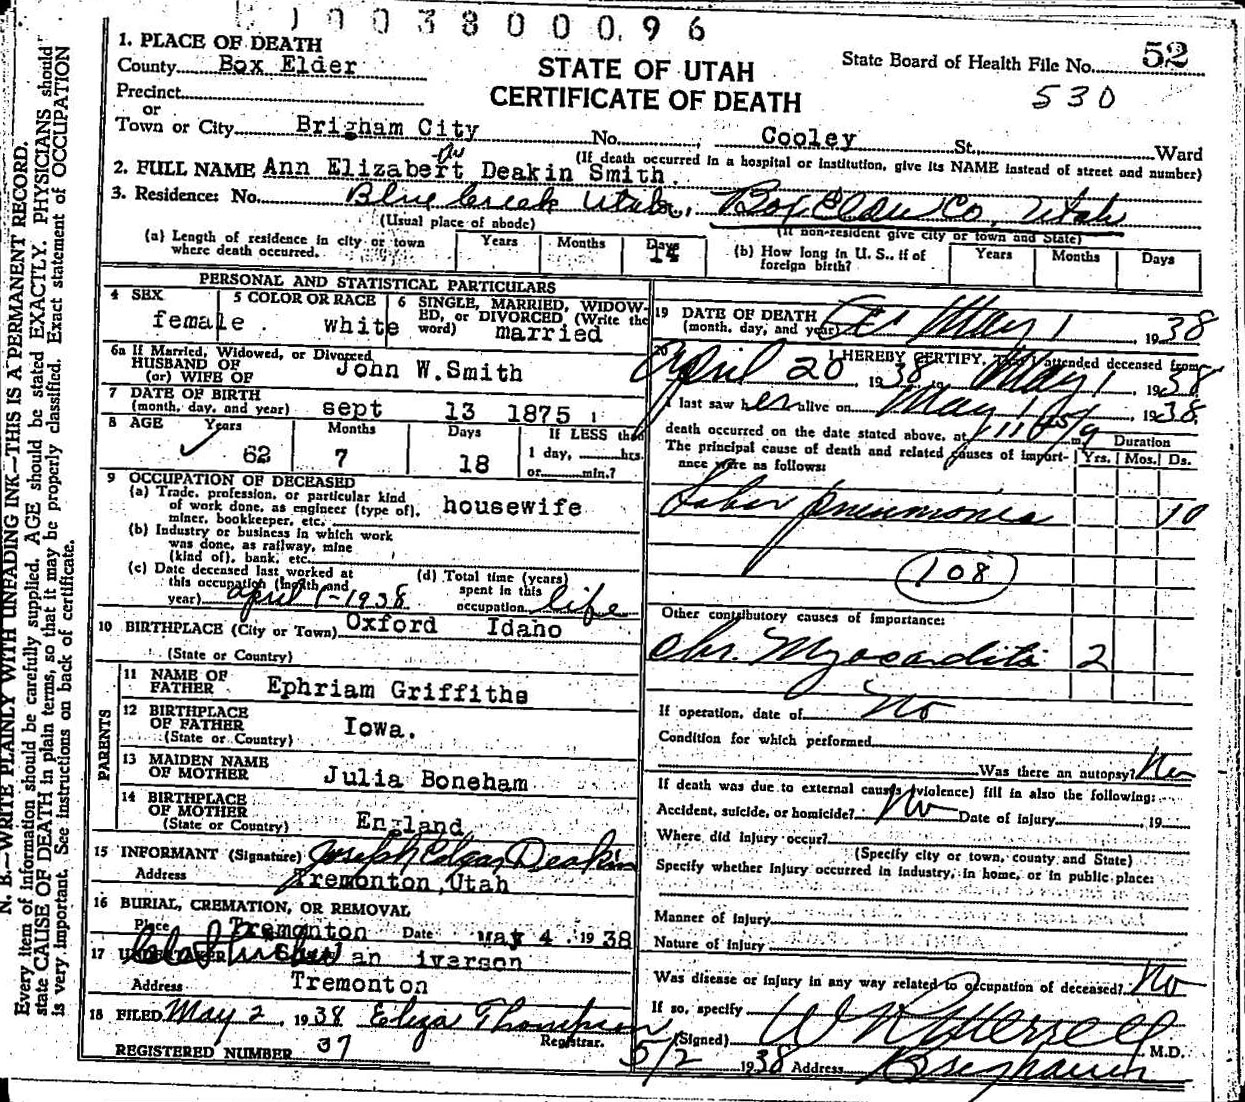 1003800096
1. PLACE OF DEATH
County Box Elder
STATE OF UTAH
State Board of Health File No. 52
Precinct
CERTIFICATE OF DEATH
530
or
Town or City Brigham City No. Cooley St. Ward
(If death occurred in a hospital or institution, give its NAME instead of street and number)
2. FULL NAME Ann Elizabert Deakin Smith.
3. Residence: No. Blue Creek Utah, Box Elder Co, Utah
(Usual place of abode)
(If non-resident give city or town and State)
(a) Length of residence in city or town where death occurred. Years Months Days 14
(b) How long in U. S., if of foreign birth? Years Months Days
PERSONAL AND STATISTICAL PARTICULARS
4 SEX female.
5 COLOR OR RACE white
6 SINGLE, MARRIED, WIDOWED, or DIVORCED (Write the word) married
6a If Married, Widowed, or Divorced
HUSBAND OF
(or) WIFE OF John W.Smith
7 DATE OF BIRTH
(month, day, and year) sept 13 1875
8 AGE Years Months Days If LESS than
62 7 18 1 day, hrs.
or min.?
9 OCCUPATION OF DECEASED
(a) Trade, profession, or particular kind
of work done, as engineer (type of), housewife
miner, bookkeeper, etc.
(b) Industry or business in which work
was done, as railway, mine
(kind of), bank, etc.
(c) Date deceased last worked at
this occupation (month and
year) april 1-1938
(d) Total time (years)
spent in this
occupation life
10 BIRTHPLACE (City or Town) Oxford Idaho
(State or Country)
PARENTS
11 NAME OF
FATHER Ephriam Griffiths
12 BIRTHPLACE
OF FATHER Iowa.
(State or Country)
13 MAIDEN NAME
OF MOTHER Julia Boneham
14 BIRTHPLACE
OF MOTHER
(State or Country) England
15 INFORMANT (Signature) Joseph Edgar Deakin
Address Tremonton, Utah
16 BURIAL, CREMATION, OR REMOVAL
Place Tremonton Date May 4. 1938
17 UNDERTAKER iverson
Address Tremonton
18 FILED May 2, 1938 Eliza Thompson
Registrar.
REGISTERED NUMBER 37
19 DATE OF DEATH
(month, day, and year) May 1 1938
20 I HEREBY CERTIFY, That I attended deceased from
April 20, 1938, May 1, 1938
I last saw her alive on May 1 1938
death occurred on the date stated above, at m. Duration
The principal cause of death and related causes of importance were as follows: Yrs. Mos. Ds.
Lobar pneumonia 10
108
Other contributory causes of importance:
Chr. Myocarditis 2
If operation, date of No
Condition for which performed
Was there an autopsy? No
If death was due to external causes (violence) fill in also the following:
Accident, suicide, or homicide? No Date of injury , 19
Where did injury occur?
(Specify city or town, county and State)
Specify whether injury occurred in industry, in home, or in public place:
Manner of injury
Nature of Injury
Was disease or injury in any way related to occupation of deceased? No
If so, specify
(Signed) M.D.
5/2 1938 Address Brigham
N. B.—WRITE PLAINLY WITH UNFADING INK—THIS IS A PERMANENT RECORD.
Every item of information should be carefully supplied. AGE should be stated EXACTLY. PHYSICIANS should
state CAUSE OF DEATH in plain terms, so that it may be properly classified. Exact statement of OCCUPATION
is very important. See instructions on back of certificate.